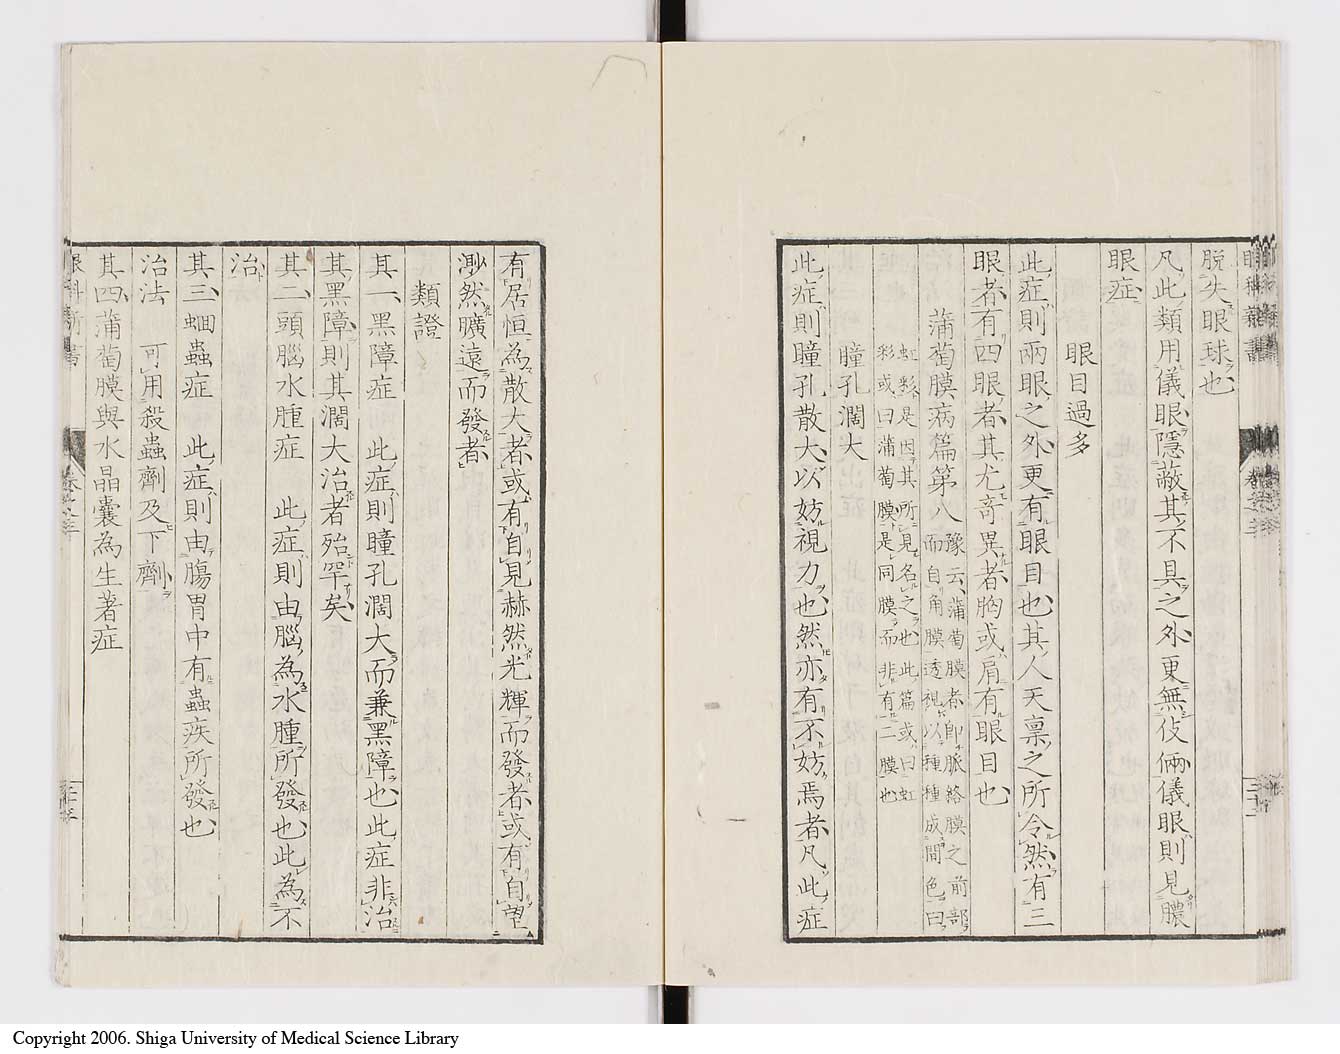 脱失眼球也
凡此類用儀眼隱蔽其不具之外更無伎倆儀眼則見膿
眼症
眼目過多
此症則兩眼之外更有眼目也其人天稟之所令然有三
眼者有四眼者其尤奇異者胸或肩有眼目也
蒲萄膜病篇第八
豫云蒲萄膜者即脈絡膜之前部
而自角膜透視以種種成間色曰
虹彩是因其所見名之也此篇或曰虹
彩或曰蒲萄膜是同膜而非有二膜也
瞳孔濶大
此症則瞳孔散大以妨視力也然亦有不妨焉者凡此症
有居恒為散大者或有自見赫然光輝而發者或有自望
渺然曠遠而發者
類證
其一黑障症　此症則瞳孔濶大而兼黑障也此症非治
其黑障則其濶大治者殆罕矣
其二頭腦水腫症　此症則由腦為水腫所發也此為不
治
其三蛔蟲症　此症則由腸胃中有蟲疾所發也
治法　可用殺蟲劑及下劑
其四蒲萄膜與水晶囊為生著症
眼科新書
Copyright 2006. Shiga University of Medical Science Library